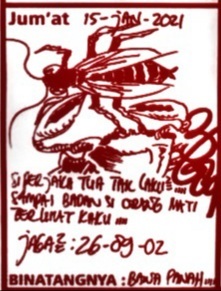 Jum'at 15-JAN-2021
SI PERJAKA TUA TAK LAKU²....
SAMPAI BADAN SI ORANG MATI
TERLIHAT KAKU ....
JAGA²: 26-89-02
BINATANGNYA : BAWA PANAH....